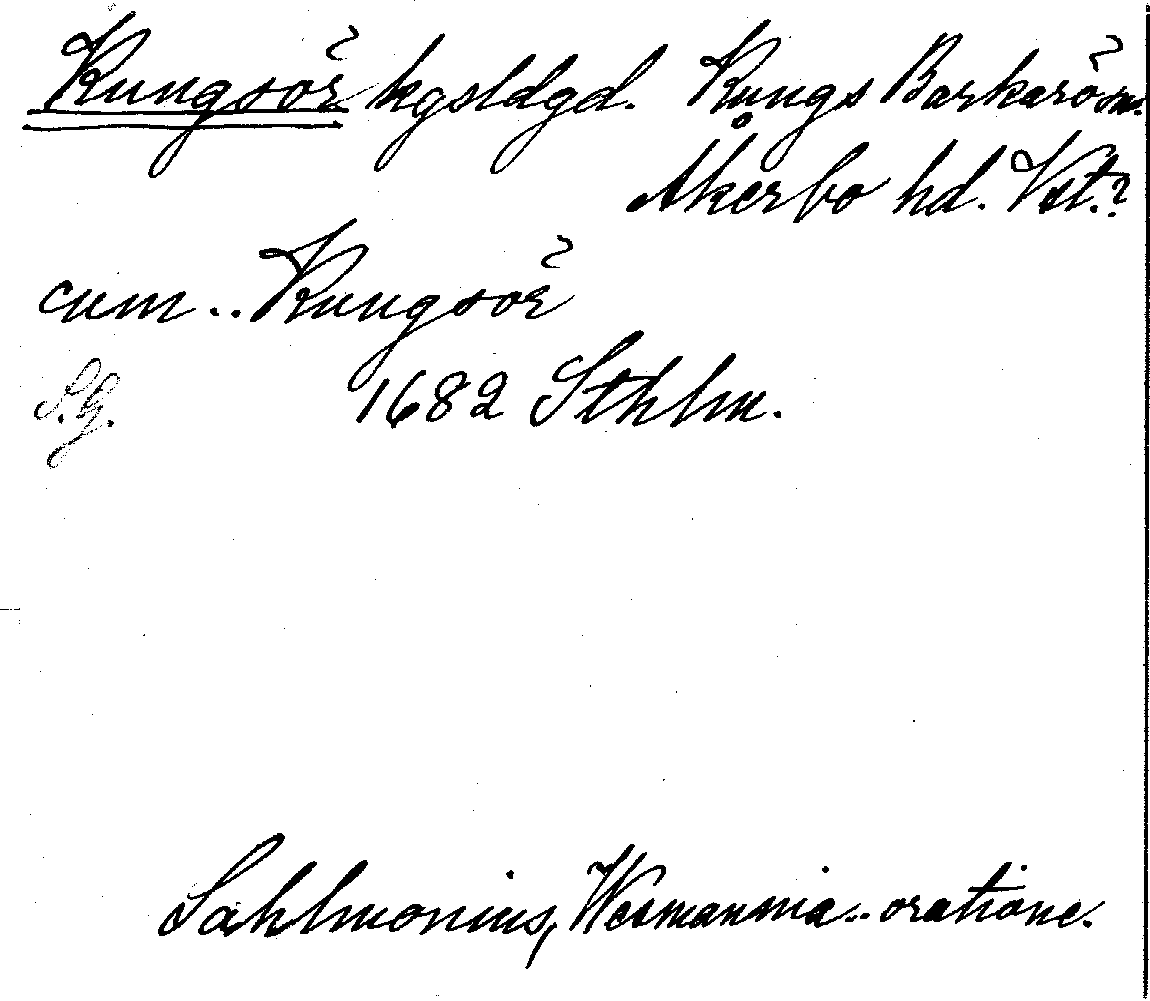 Kungsör kgsldgd. Kungs Barkarö sn.
Åkerbo hd. Vstm?
cum .. Kungsör
S.G. 1682 Sthlm.
Sahlmonius, Wesmannia .. oratione.